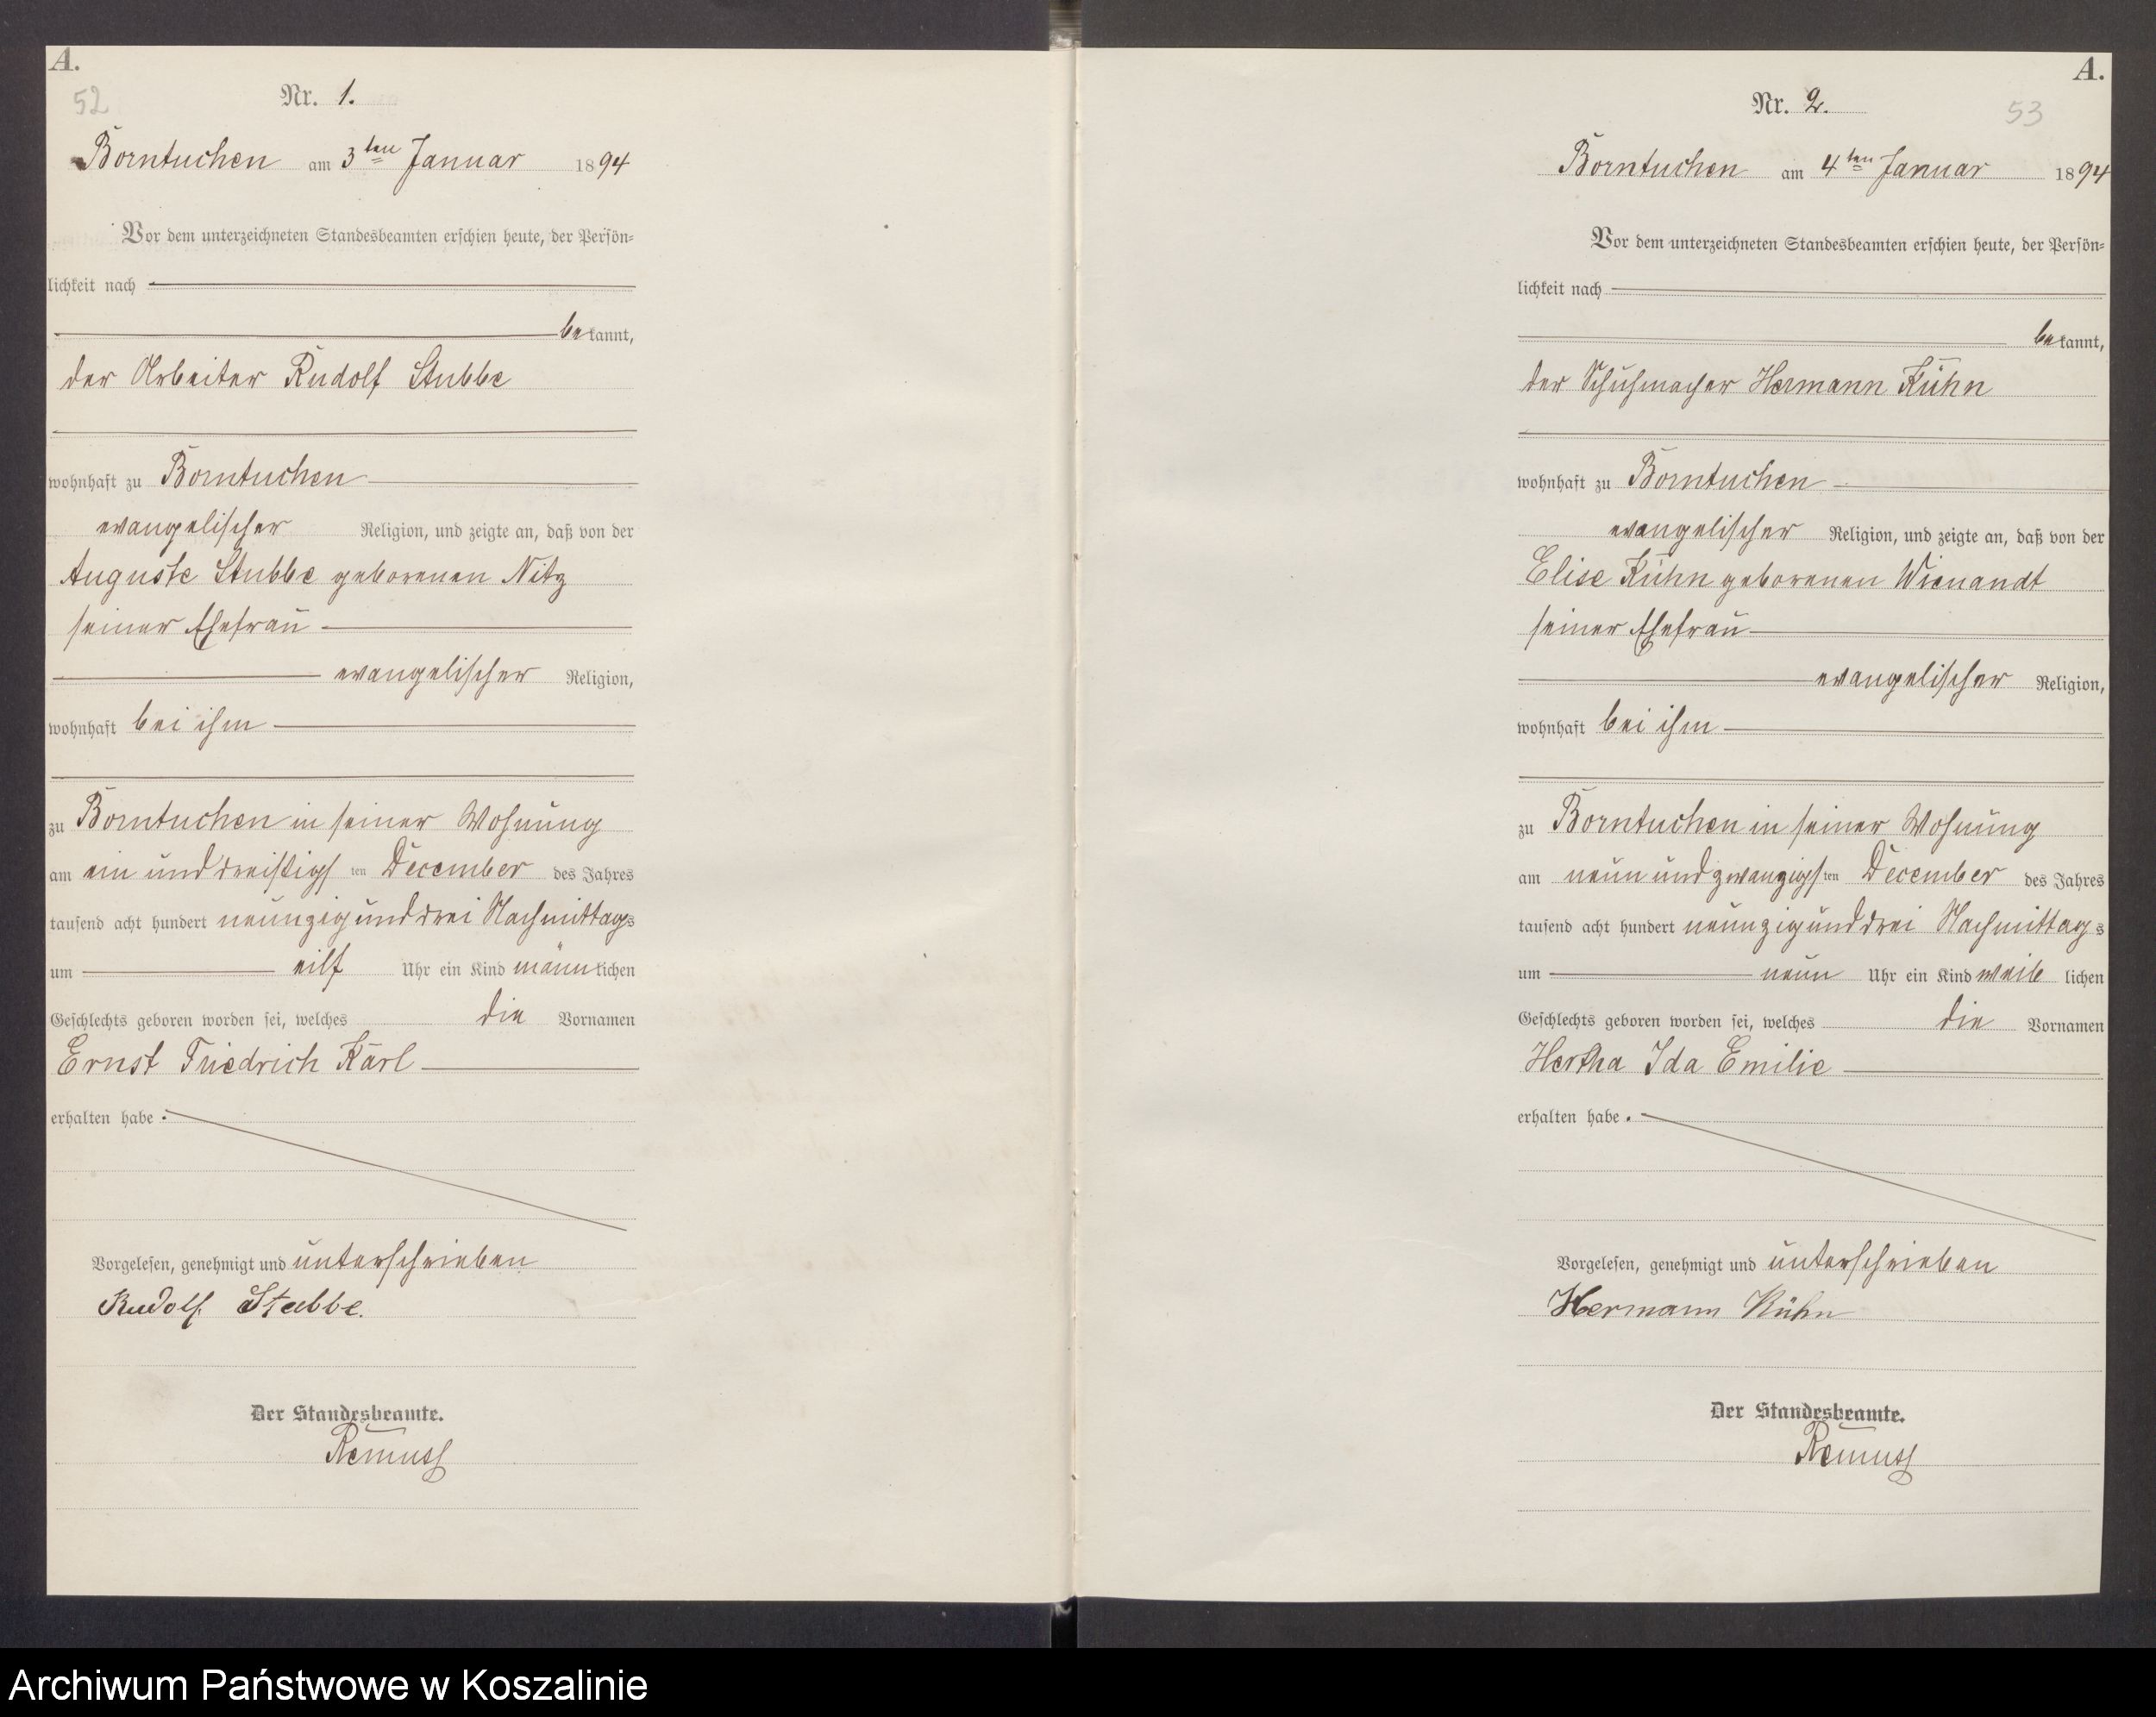 A.
52
Nr. 1.
Borntuchen am 3ten Januar 1894
Vor dem unterzeichneten Standesbeamten erschien heute, der Persön-
lichkeit nach
bekannt,
der Arbeiter Rudolf Stubbe
wohnhaft zu Borntuchen
evangelischer Religion, und zeigte an, daß von der
Auguste Stubbe geborenen Nitz
seiner Ehefrau
evangelischer Religion,
wohnhaft bei ihm
zu Borntuchen in seiner Wohnung
am ein und dreißigsten December des Jahres
tausend acht hundert neunzig und drei Nachmittags
um eilf Uhr ein Kind männlichen
Geschlechts geboren worden sei, welches die Vornamen
Ernst Friedrich Karl
erhalten habe.
Vorgelesen, genehmigt und unterschrieben
Rudolf Stubbe.
Der Standesbeamte.
Remuss
A.
53
Nr. 2.
Borntuchen am 4ten Januar 1894
Vor dem unterzeichneten Standesbeamten erschien heute, der Persön-
lichkeit nach
bekannt,
der Schuhmacher Hermann Kühn
wohnhaft zu Borntuchen
evangelischer Religion, und zeigte an, daß von der
Elise Kühn geborenen Wienandt
seiner Ehefrau
evangelischer Religion,
wohnhaft bei ihm
zu Borntuchen in seiner Wohnung
am neun und zwanzigsten December des Jahres
tausend acht hundert neunzig und drei Nachmittags
um neun Uhr ein Kind weiblichen
Geschlechts geboren worden sei, welches die Vornamen
Hertha Ida Emilie
erhalten habe.
Vorgelesen, genehmigt und unterschrieben
Hermann Kühn
Der Standesbeamte.
Remuss
Archiwum Państwowe w Koszalinie